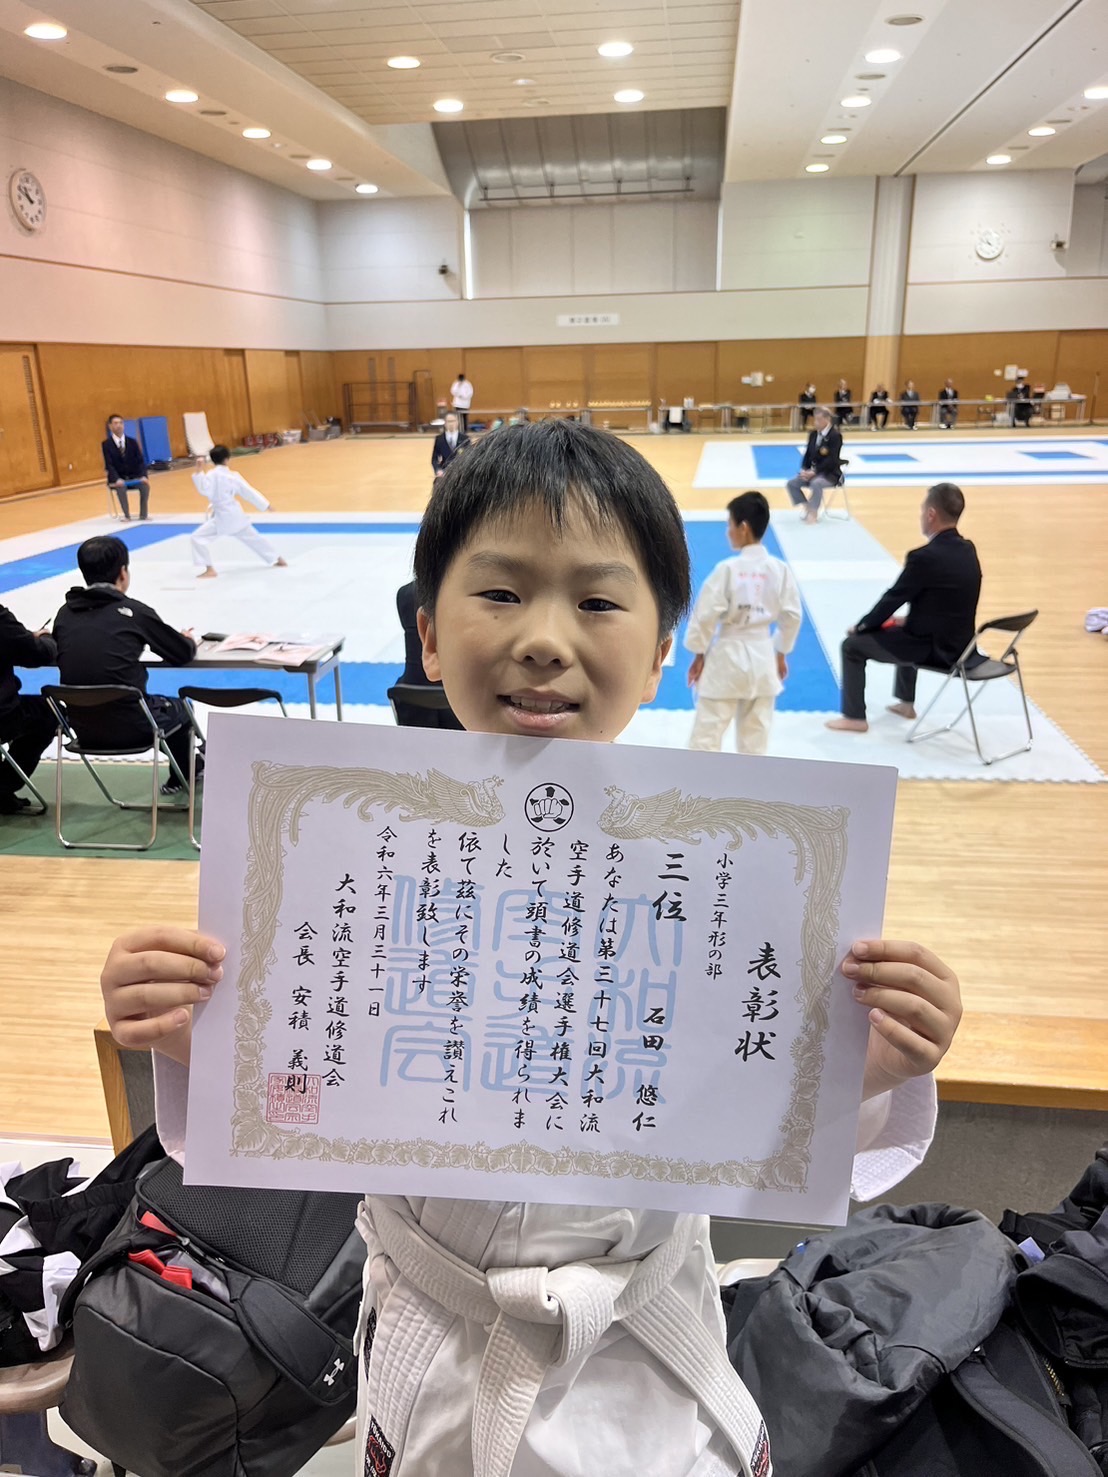 表彰状
小学三年形の部
三位 石田 悠仁
あなたは第三十七回大和流
空手道修道会選手権大会に
於いて頭書の成績を得られま
した
依て茲にその栄誉を讃えこれ
を表彰致します
令和六年三月三十一日
大和流空手道修道会
会長 安積 義則
大和流
空手道
修道会